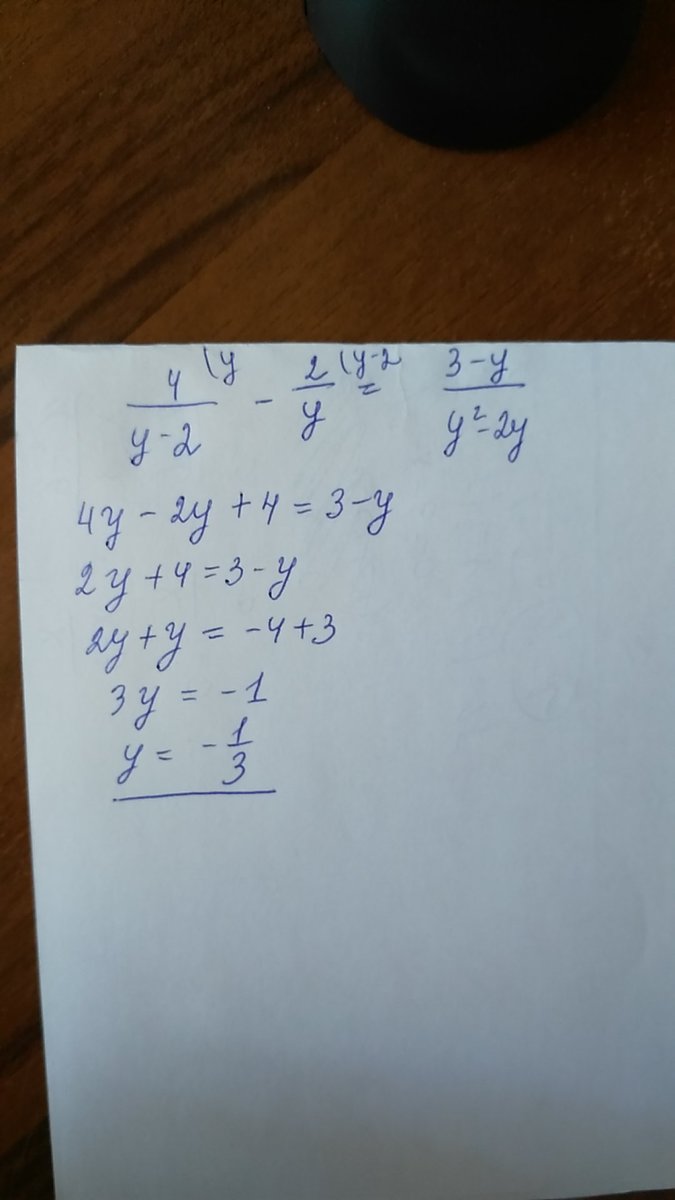 4/(y-2) (y - 2/y (y-2 = (3-y)/(y²-2y)
4y - 2y + 4 = 3-y
2y + 4 = 3 - y
2y + y = -4+3
3y = -1
y = -1/3